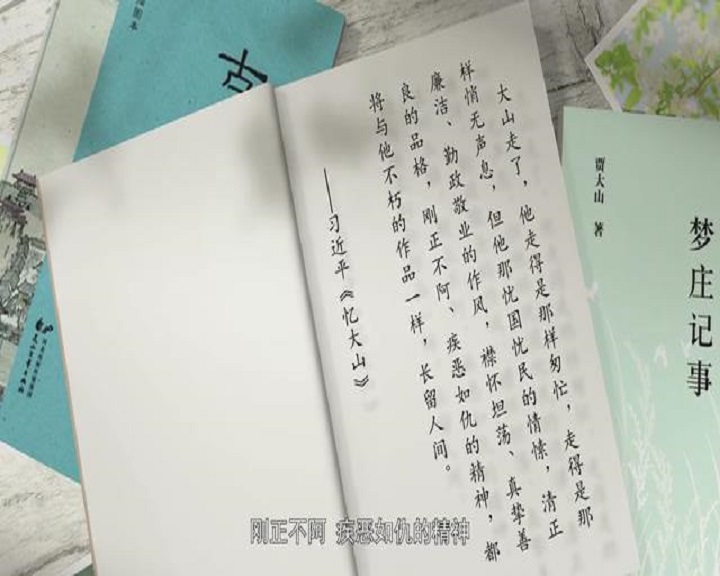 大山走了，他走得是那样匆忙，走得是那
样悄无声息，但他那忧国忧民的情愫，清正
廉洁、勤政敬业的作风，襟怀坦荡、真挚善
良的品格，刚正不阿、疾恶如仇的精神，都
将与他不朽的作品一样，长留人间。
——习近平《忆大山》
梦庄记事
贾大山 著
古
图本
刚正不阿 疾恶如仇的精神